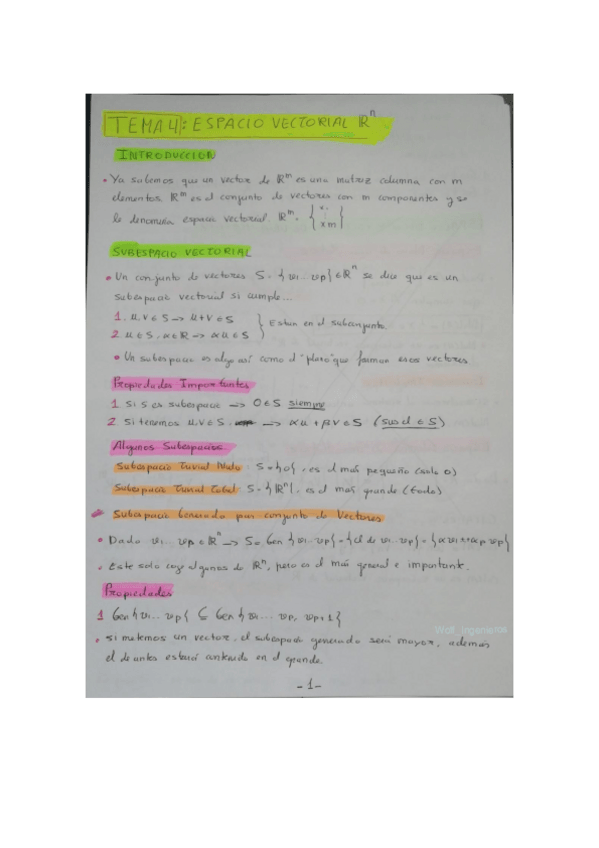 TEMA 4: ESPACIO VECTORIAL ℝⁿ
INTRODUCCION
• Ya sabemos que un vector de ℝᵐ es una matriz columna con m
elementos. ℝᵐ es el conjunto de vectores con m componentes y se
le denomina espacio vectorial. ℝᵐ = { x₁ ⋮ xm }
SUBESPACIO VECTORIAL
• Un conjunto de vectores S = {v₁...vp} ∈ ℝⁿ se dice que es un
subespacio vectorial si cumple...
1. u, v ∈ S → u+v ∈ S
2. u ∈ S, α ∈ ℝ → αu ∈ S } Estan en el subconjunto.
• Un subespacio es algo así como el "plano" que forman esos vectores
Propiedades Importantes
1. Si S es subespacio → 0 ∈ S siempre
2. Si tenemos u, v ∈ S → αu + βv ∈ S (sus cl ∈ S)
Algunos Subespacios
Subespacio Trivial Nulo: S = {0}, es el más pequeño (solo 0)
Subespacio Trivial Total: S = {ℝⁿ}, es el más grande (todo)
Subespacio Generado por conjunto de Vectores
• Dado v₁...vp ∈ ℝⁿ → S = Gen {v₁...vp} = {cl de v₁...vp} = {αv₁+αp vp}
• Este solo coge algunos de ℝⁿ, pero es el más general e importante.
Propiedades
1 Gen {v₁...vp} ⊆ Gen {v₁...vp, vp+1}
• Si metemos un vector, el subespacio generado será mayor, además
el de antes estará contenido en el grande.
Wolf_ingenieria
-1-